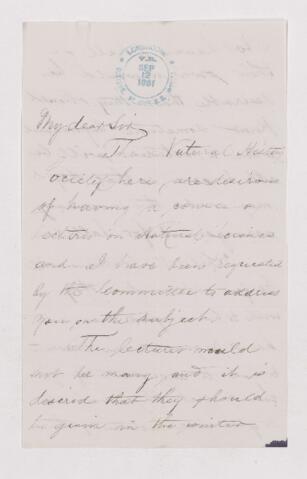 SEP
12
1861
My dear Sir,
The Natural History
ociety here, are desirous
of having a course o
ectures on Natural cience
and I have been requested
by the Committee to address
you on the subject.
The lectures would
not be many, and it is
desired that they should
be given in the winter